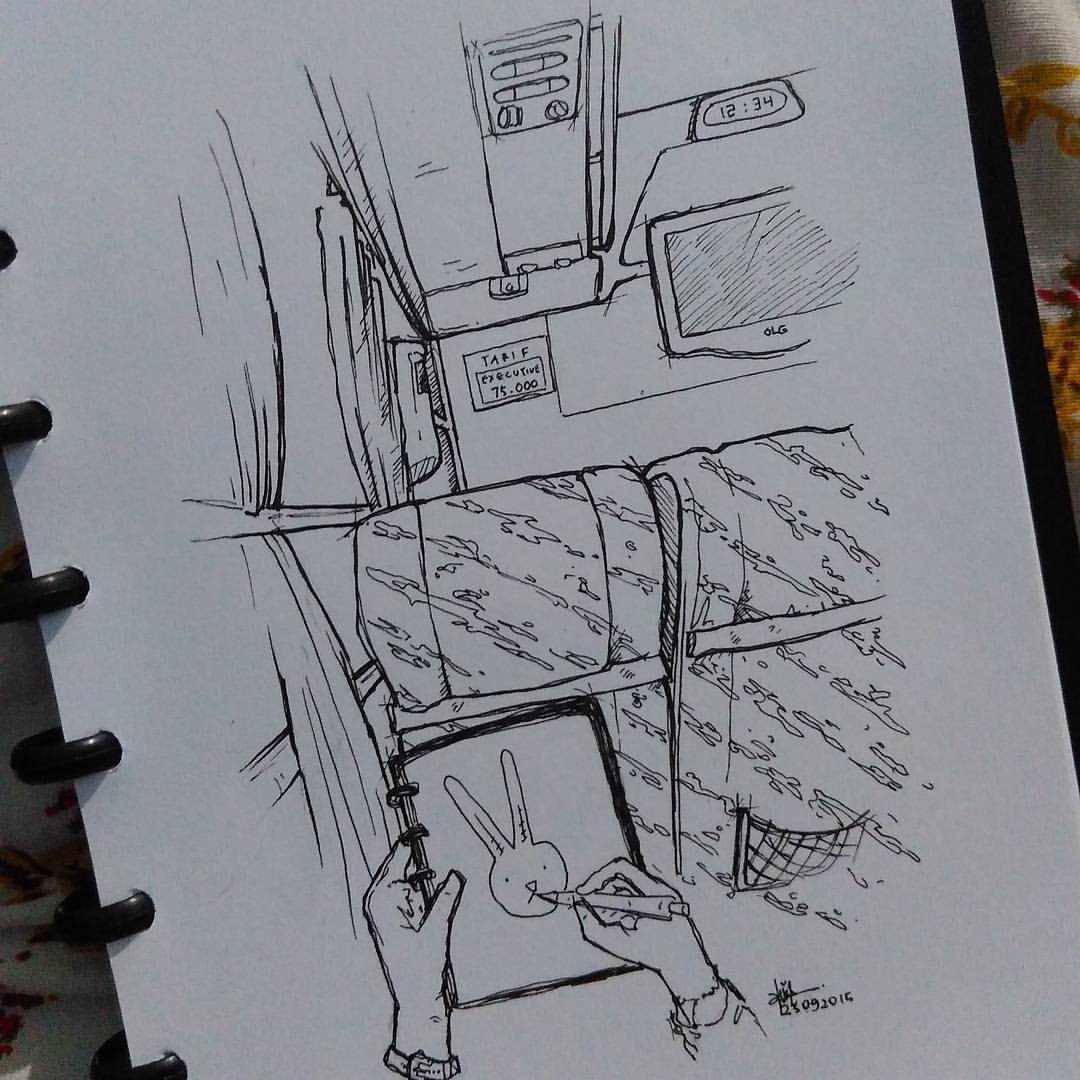 12:34
OLG
TARIF
EXECUTIVE
75.000
23092015